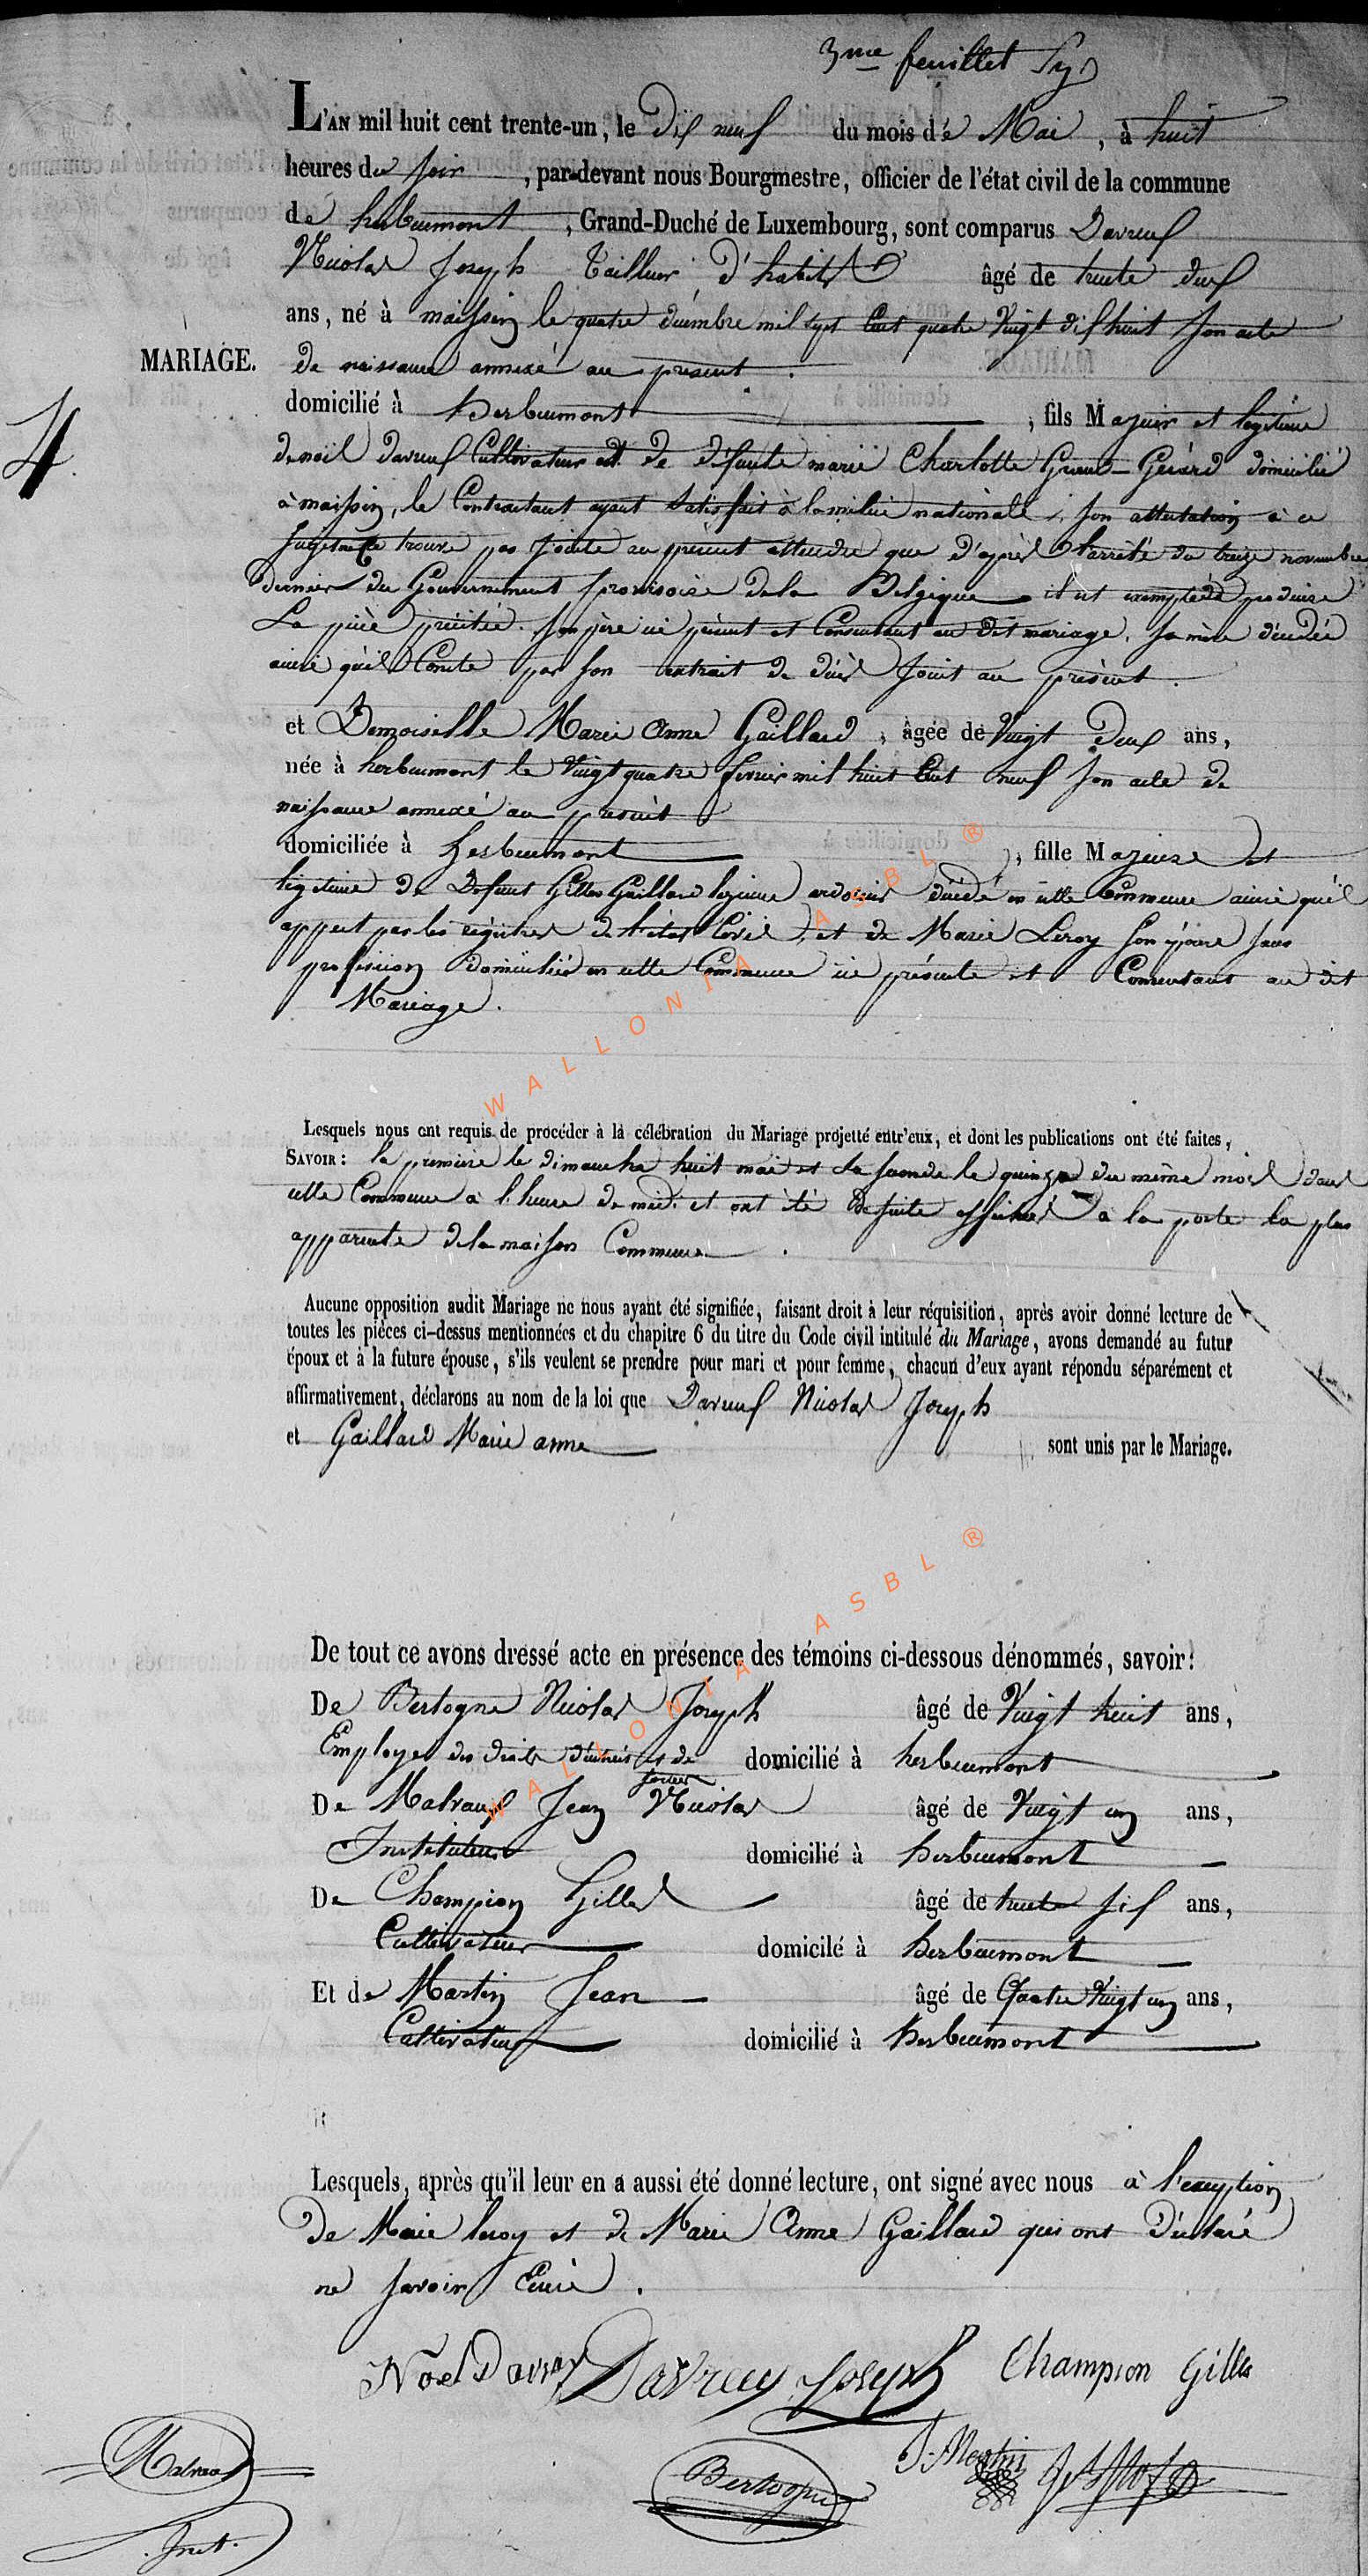 3me feuillet
L'AN mil huit cent trente-un, le dix neuf du mois de Mai, à huit
heures du soir, par-devant nous Bourgmestre, officier de l'état civil de la commune
de herbeumont, Grand-Duché de Luxembourg, sont comparus Davreux
Nicolas Joseph Tailleur d'habits âgé de trente deux
ans, né à maissin le quatre décembre mil sept Cent quatre Vingt dix huit son acte
MARIAGE.
de naissance annexé au present.
4
domicilié à herbeumont, fils Majeur et légitime
de noël davreux Cultivateur et de défunte marie Charlotte Gérard domicilié
à maissin, le Contractant ayant satisfait à la milice nationale, son attestation à ce
sujet ne se trouve pas jointe au présent attendu que d'après l'arrêté du treize novembre
dernier du Gouvernement provisoire de la Belgique il est exempté de produire
La pièce précitée. son père ici présent et Consentant au dit mariage, sa mère décédée
ainsi qu'il Conste par son extrait de décès joint au présent.
et Demoiselle Marie Anne Gaillard, âgée de Vingt deux ans,
née à herbeumont le Vingt quatre fevrier mil huit Cent neuf son acte de
naissance annexé au present
domiciliée à herbeumont, fille Majeure et
légitime de Defunt Gilles Gaillard ardoisier décédé en cette Commune ainsi qu'il
appert par les régistres de l'état Civil, et de Marie Leroy son épouse sans
profession domiciliée en cette Commune ici présente et Consentant au dit
Mariage.
WALLONIA ASBL ®
Lesquels nous ont requis de procéder à la célébration du Mariage projetté entr'eux, et dont les publications ont été faites,
SAVOIR: la premiere le dimanche huit mai et la seconde le quinze du même mois dans
cette Commune à l'heure de midi et ont été de suite affichées à la porte la plus
apparente de la maison Commune.
Aucune opposition audit Mariage ne nous ayant été signifiée, faisant droit à leur réquisition, après avoir donné lecture de
toutes les pièces ci-dessus mentionnées et du chapitre 6 du titre du Code civil intitulé du Mariage, avons demandé au futur
époux et à la future épouse, s'ils veulent se prendre pour mari et pour femme, chacun d'eux ayant répondu séparément et
affirmativement, déclarons au nom de la loi que Davreux Nicolas Joseph
et Gaillard Marie anne sont unis par le Mariage.
WALLONIA ASBL ®
De tout ce avons dressé acte en présence des témoins ci-dessous dénommés, savoir:
De Bertogne Nicolas Joseph âgé de Vingt huit ans,
Employé des droits d'entrées et de domicilié à herbeumont
sorties
De Malvaux Jean Nicolas âgé de Vingt un ans,
Instituteur domicilié à herbeumont
De Champion Gilles âgé de trente six ans,
Cultivateur domicilé à herbeumont
Et de Martin Jean âgé de Quatre Vingt un ans,
Cultivateur domicilié à herbeumont
Lesquels, après qu'il leur en a aussi été donné lecture, ont signé avec nous à l'exception
De Marie leroy et de Marie Anne Gaillard qui ont Déclaré
ne savoir Ecrire.
Noël Davreux Davreux Joseph Champion Gilles
Malvaux Bertogne J. Martin
Inst.